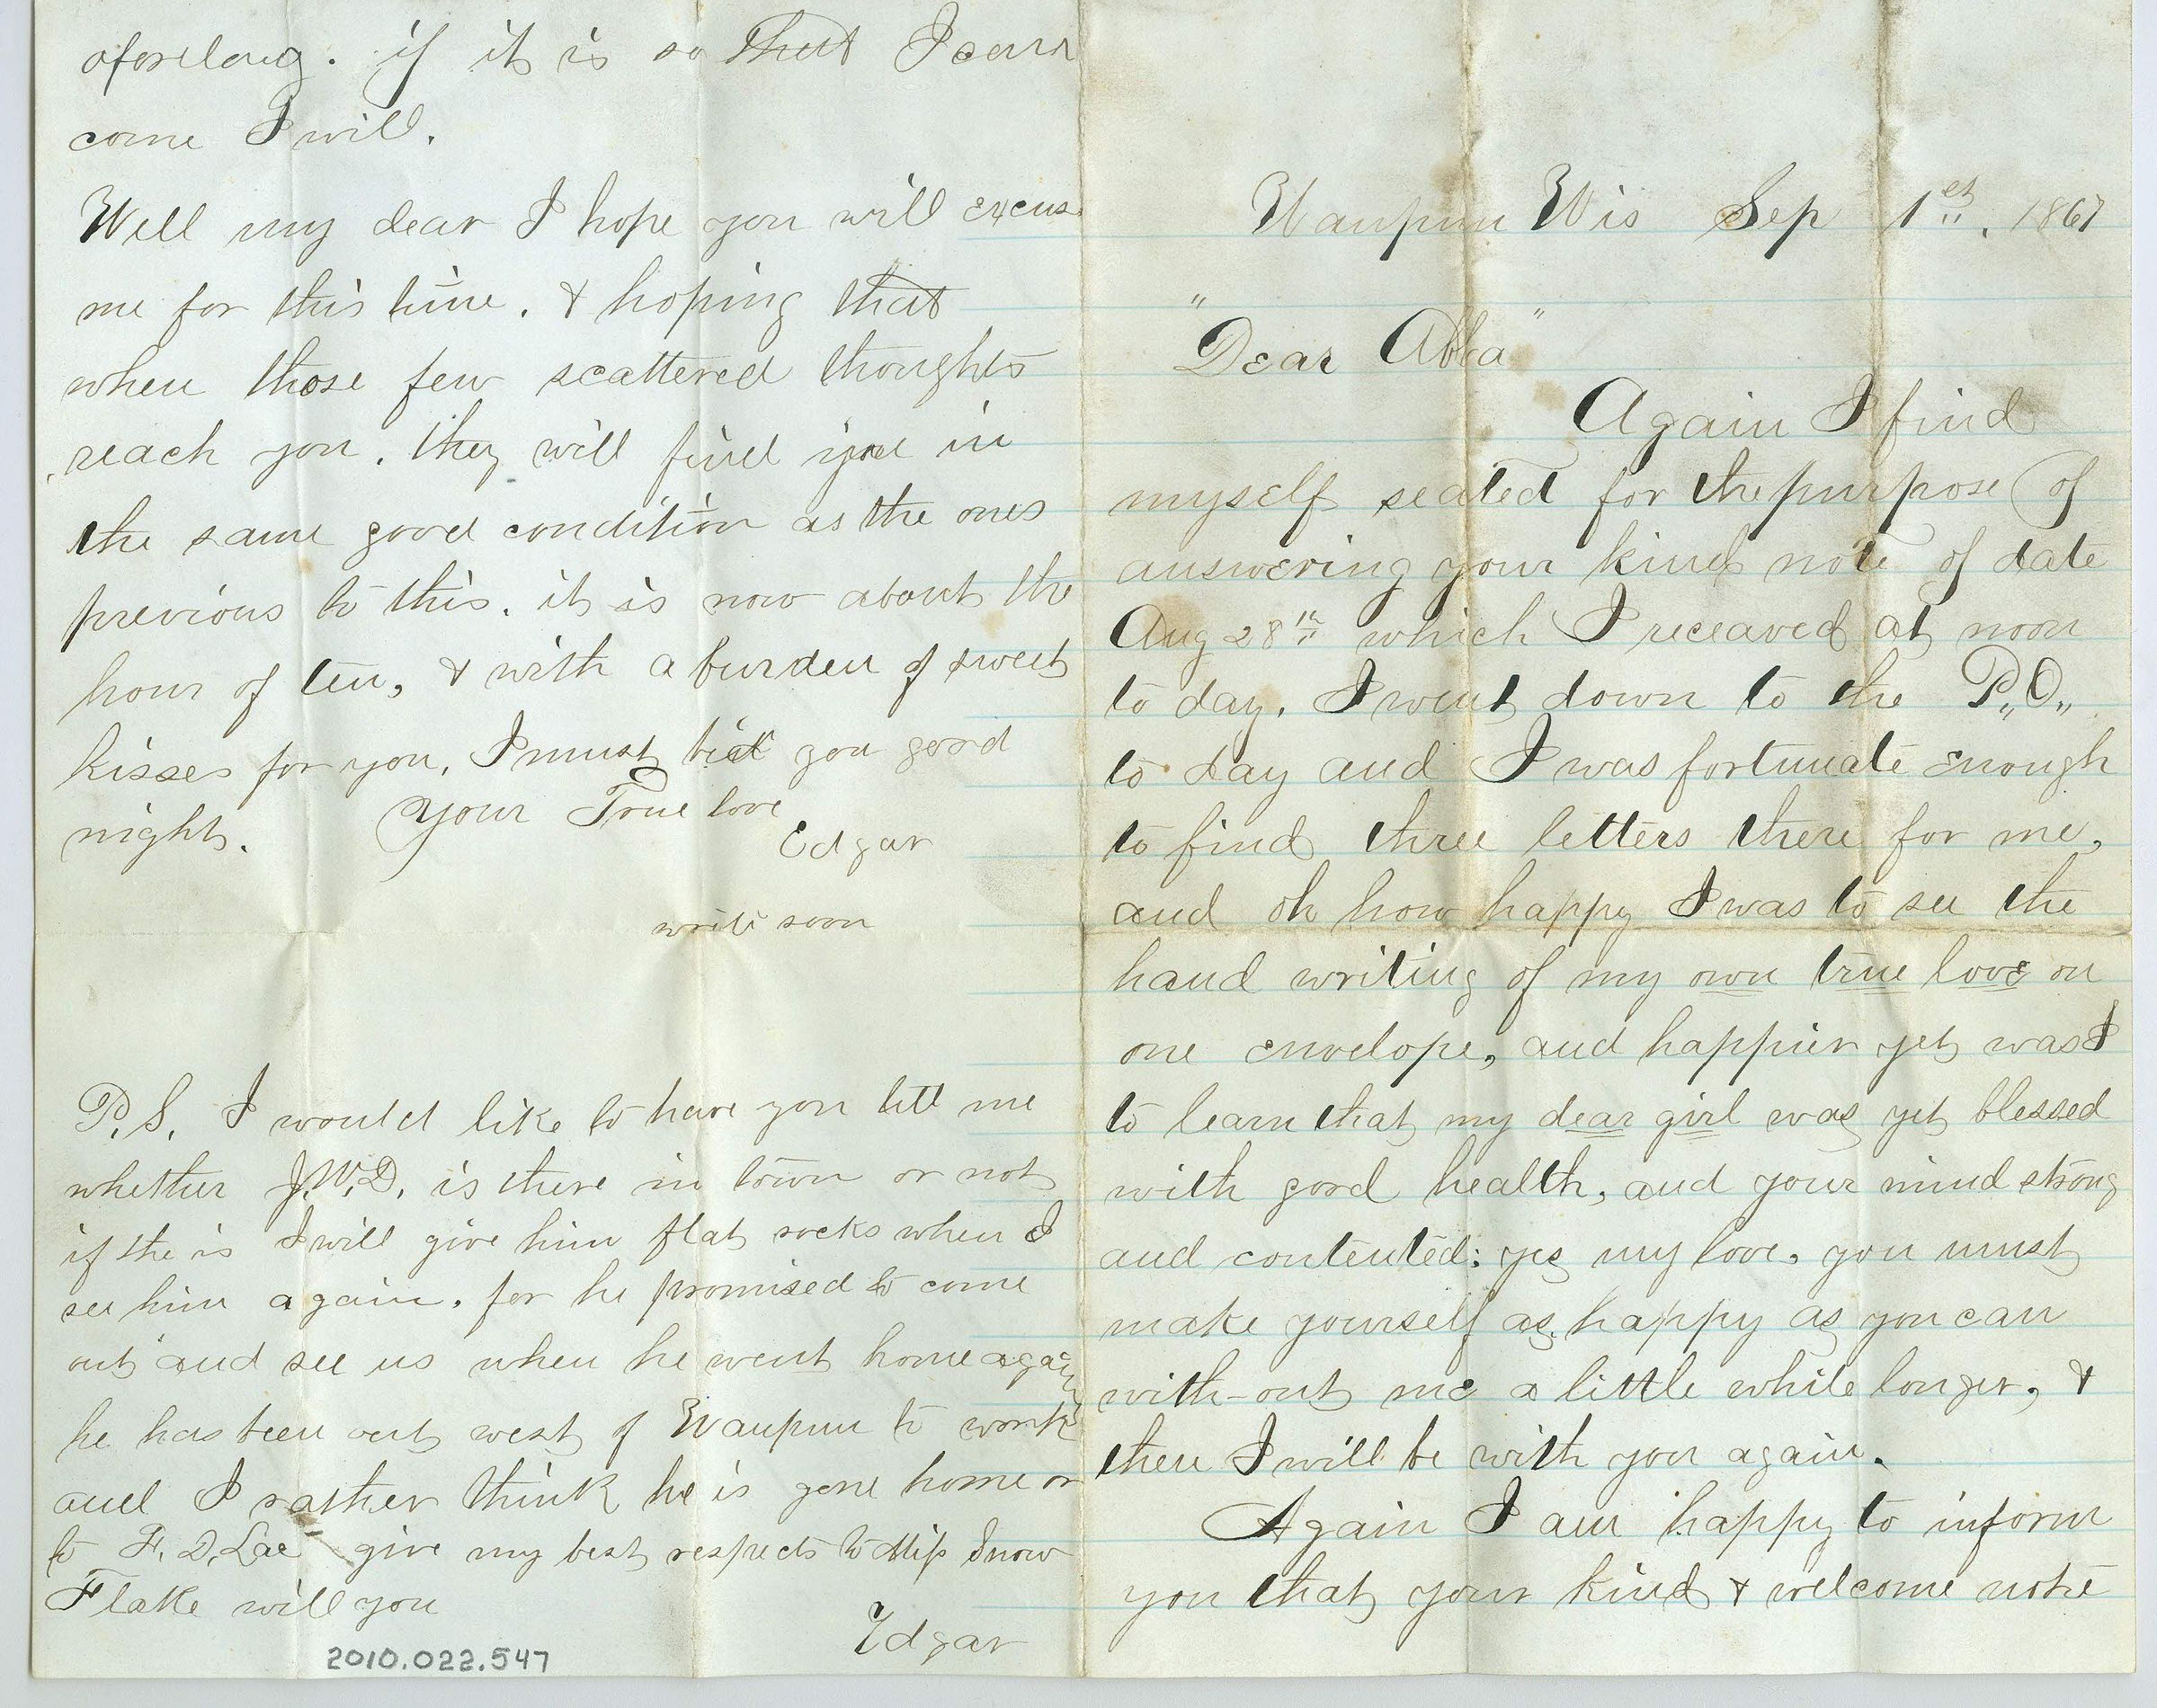 Waupun Wis Sep 1st. 1867
"Dear Abba"
Again I find
myself seated for the purpose of
answering your kind note of date
Aug 28th which I receaved at noon
to day. I went down to the P.O.,
to day and I was fortunate enough
to find three letters there for me,
and oh how happy I was to see the
hand writing of my own true love on
one envelope, and happier yet was I
to learn that my dear girl was yet blessed
with good health, and your mind strong
and contented: yes my love, you must
make yourself as happy as you can
with-out me a little while longer, &
then I will be with you again.
Again I am happy to inform
you that your kind & welcome note
aforelong. if it is so that I can
come I will.
Well my dear I hope you will excuse
me for this time. & hoping that
when those few scattered thoughts
reach you. they will find you in
the same good condition as the ones
previous to this. it is now about the
hour of ten, & with a burden of sweet
kisses for you, I must bid you good
night. Your True love
Edgar
write soon
P.S. I would like to have you tell me
whether J.W.D. is there in town or not
if the is I will give him flat rocks when I
see him again. for he promised to come
out and see us when he went home again
he has been out west of Waupun to work
and I rather think he is gone home or
to F. D. Lac give my best respects to Miss Snow
Flake will you
Edgar
2010.022.547